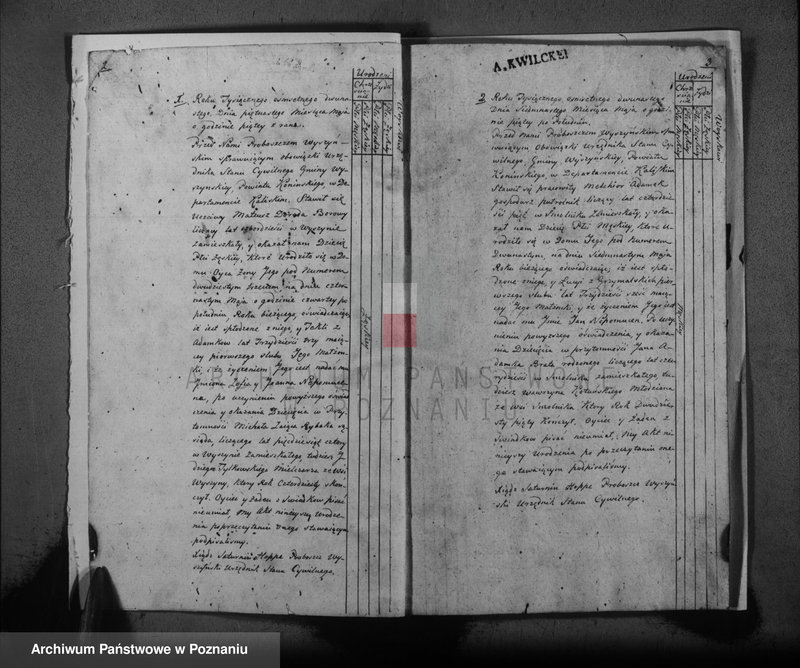 2
Urodzeni
Chrz
Żydzi
1. Roku Tysiącznego osmsetnego dwuna
stego, Dnia piętnastego Miesiąca Maja
o godzinie piątey z rana.
Przed Nami Proboszczem Wyszyń-
skim sprawuiącym obowiązki Urzę-
dnika Stanu Cywilnego Gminy Wy-
szynskiy, Powiatu Konińskiego w De-
partamencie Kaliskim, Stawił się
Uczciwy Mateusz Borowy
liczący lat czterdzieści w Wyszynie
zamieszkały, y okazał nam Dziecię
Płci Żęskiy, które Urodziło się w Do-
mu Oyca żony Jego pod Numerem
dwudziestym trzecim na dniu czter-
nastym Maja o godzinie czwarty po
południu Roku bieżącego, oświadczaiąc
iż iest spłodzone z niego, y Tekli z
Adamkow lat Trzydzieści trzy maią-
cey pierwszego slubu Jego Małzon-
ki, i że życzeniem Jego iest nadać mu
Jmiona Zofia y Joanna Nepomuce-
na, po uczynieniu powyższego oswiad
czenia y okazania Dziecięcia w Przy-
tomnosci Michała Rybaka są-
siada, liczącego lat pięćdziesiąt cztery
w Wyszynie Zamieszkałego, tudzież J
dziego Tylkowskiego Mielcarza ze Wsi
Wyszyny, ktory Rok Czterdziesty skon-
czył. Oyciec y żaden z Swiadkow pisać
nieumiał, My Akt ninieyszy Urodze-
nia poprzeczytaniu onego stawaiącym
podpisalismy.
Xiądz Saturnin Hoppe Proboszcz Wy-
szyński Urzędnik Stanu Cywilnego.
Żęskiey
A. KWILCKEI
3
Urodzeni
Chrz
Żydzi
2. Roku Tysiącznego osmsetnego dwunastego
Dnia Siedmnastego Miesiąca Maja o godzi
nie piątey po Południu.
Przed Nami Proboszczem Wyszyńskim spra
wuiącym Obowiązki Urzędnika Stanu Cy
wilnego, Gminy Wyszyńskiy, Powiatu
Konińskiego, w Departamencie Kaliskim
Stawił się pracowity Melchior Adamek
gospodarz pułrolnik liczący lat czterdzie
ści pięć w Smolniku Zamieszkały, y oka-
zał nam Dziecię Płci Męskiy, które U-
rodziło się w Domu Jego pod Numerem
Dwunastym, na dniu Siedmnastym Maja
Roku bieżącego oświadczaiąc, iż iest spło-
dzone z niego, y Łucyi z Grzymalskich pier-
wszego slubu lat Trzydzieści sześć maią-
cey Jego Małzonki, y że życzeniem Jego iest
nadać mu Jmie Jan Nepomucen, Po uczy-
nieniu powyższego oświadczenia, y okaza-
nia Dziecięcia w przytomności Jana A-
damka Brata rodzonego liczącego lat czte-
rdzieści w Smolniku zamieszkałego, tu-
dzież Wawrzyna Kotwinskiego Młodziana
ze wsi Smolnika, Ktory Rok Dwudzie-
sty piąty Konczył. Oyciec y Żaden z
Swiadkow pisać nieumiał, My Akt ni-
nieyszy Urodzenia po przeczytaniu one-
go stawaiącym podpisalismy.
Xiądz Saturnin Hoppe Proboszcz Wyszyń
ski Urzędnik Stanu Cywilnego.
Męskiey
ARCHIWUM PAŃSTWOWE
W POZNANIU
Archiwum Państwowe w Poznaniu